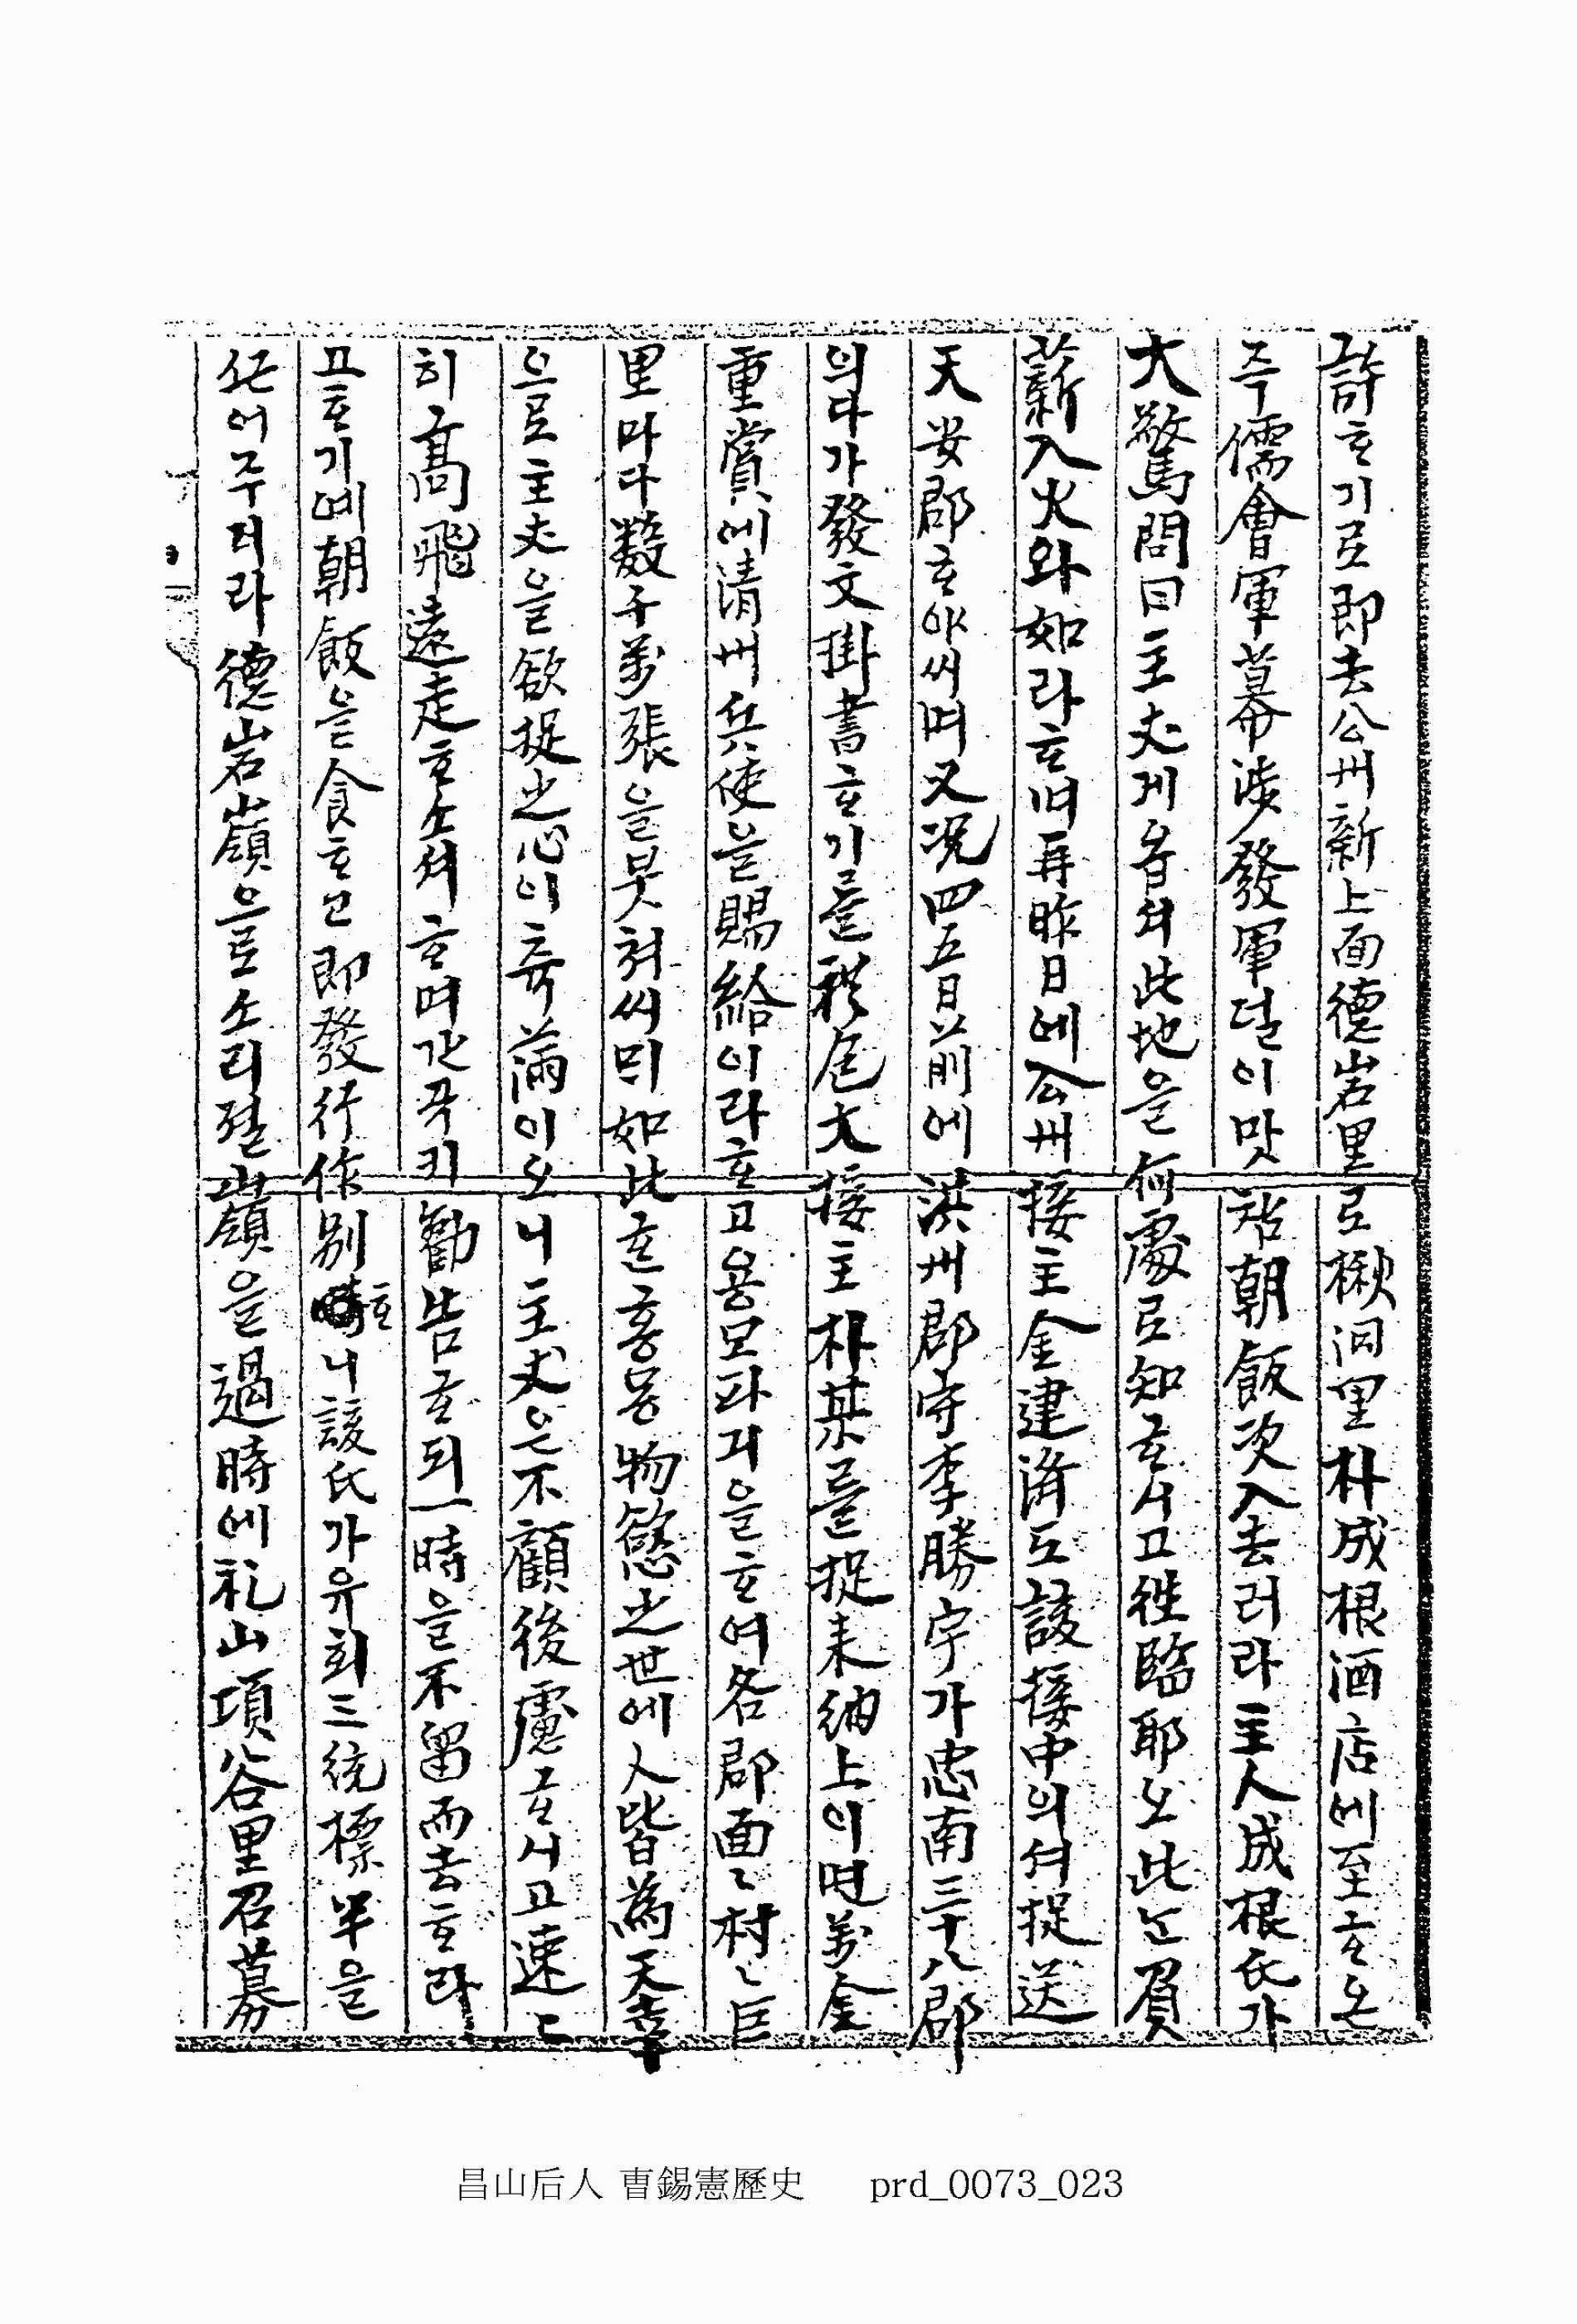 許ᄒᆞ기로 即去公州新上面德岩里로 楸洞里朴成根酒店에至ᄒᆞ온
즉儒會軍幕涉發軍덜이맛 站朝飯次入去러라主人成根氏가
大驚問曰主丈게옵셔此地을何處로知ᄒᆞ시고徃臨耶오此는負
薪入火와如라ᄒᆞ며再昨日에公州接主金建濟로該接中의셔捉送
天安郡ᄒᆞ야써며又况四五日前에洪州郡守李勝宇가忠南三十八郡
의다가發文掛書ᄒᆞ기를 大接主朴某를捉来納上이면萬金
重賞에清州兵使을賜給이라ᄒᆞ고용모파긔을ᄒᆞ여各郡面〻村〻巨
里마다数千萬張을붓쳐씨믹如此ᄒᆞᆫ흉흉物慾之世에人皆為天幸
으로主丈을欲捉之心이充滿이오니主丈은不顧後慮ᄒᆞ시고速〻
히高飛遠走ᄒᆞ소셔ᄒᆞ며간곡키勸告ᄒᆞ되一時을不留而去ᄒᆞ라
고ᄒᆞ기예朝飯을食ᄒᆞ고即發行作別ᄒᆞ니該氏가유회三統標半을
어주더라德岩嶺으로소리졀嶺을過時에礼山項谷里召募
昌山后人 曺錫憲歷史 prd_0073_023